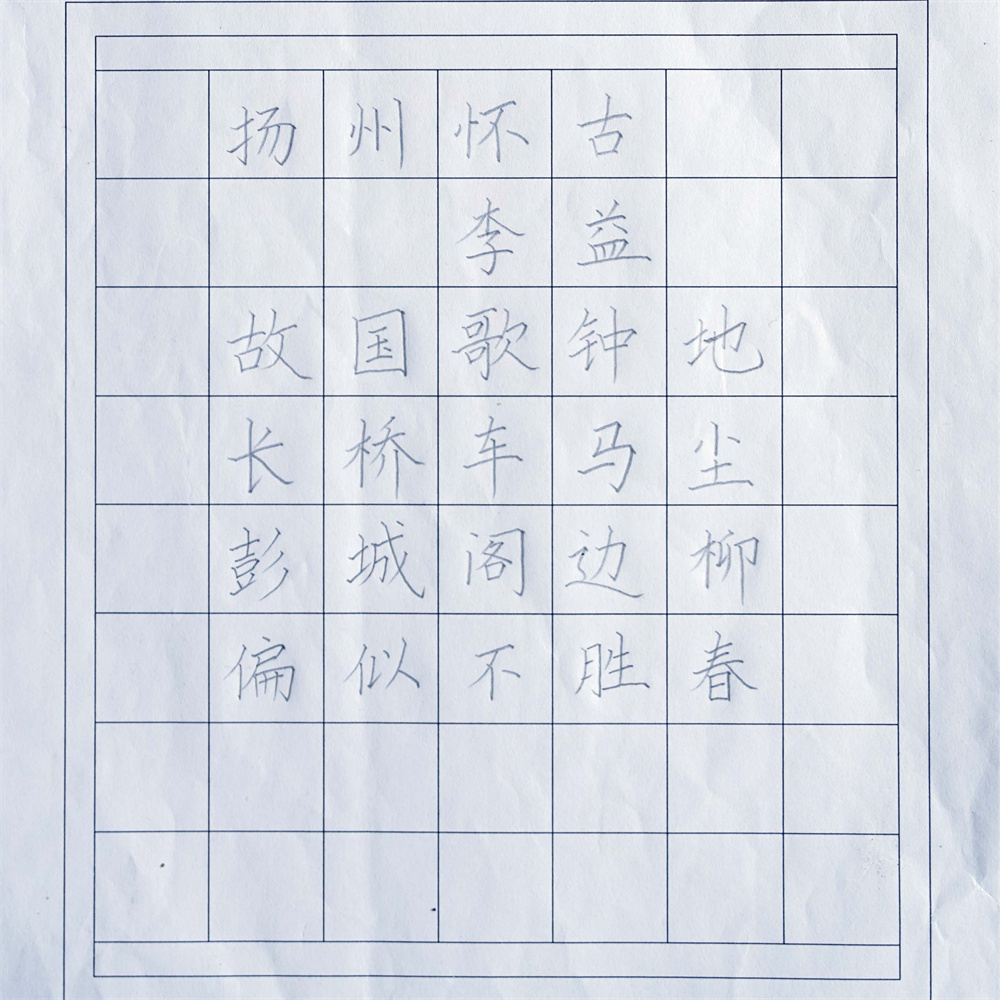 扬州怀古
李益
故国歌钟地
长桥车马尘
彭城阁边柳
偏似不胜春